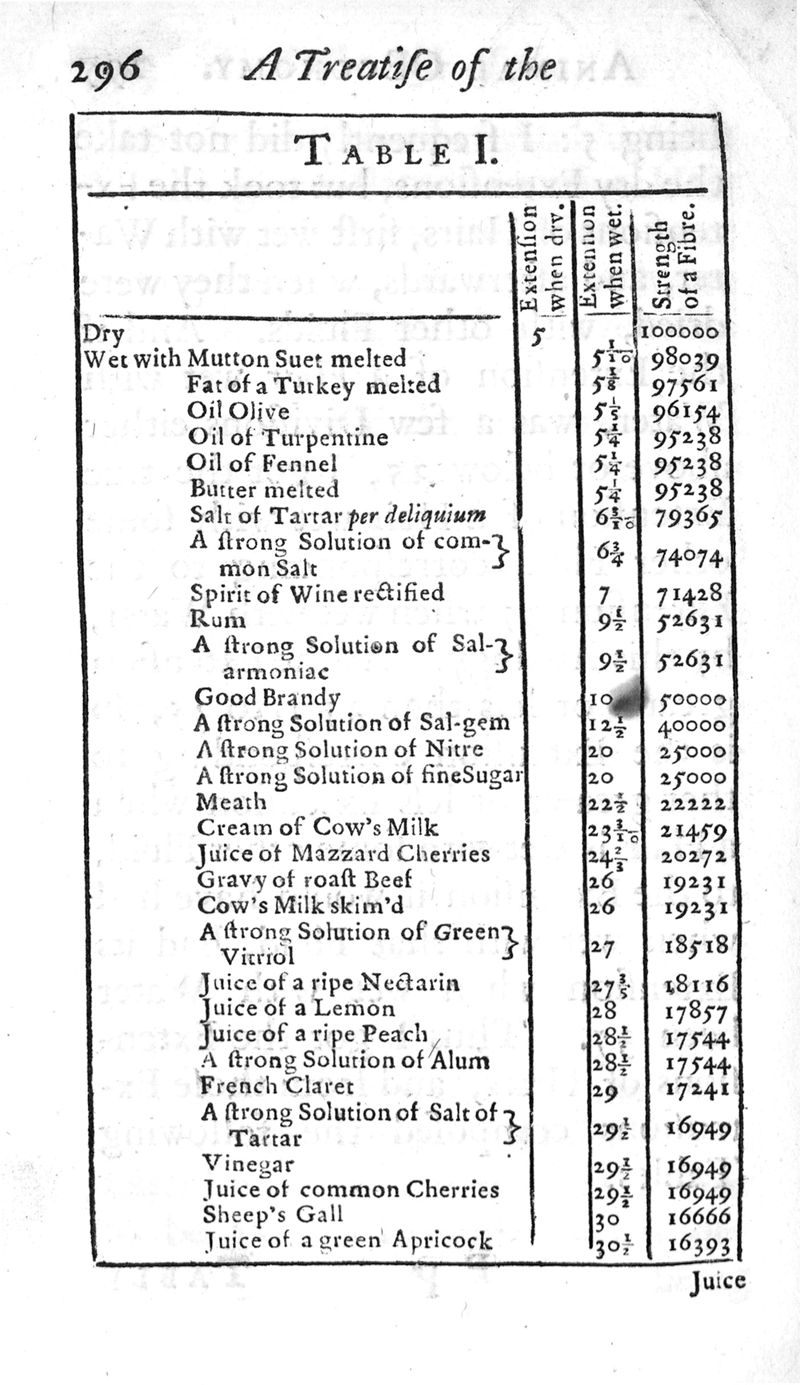 296 A Treatiſe of the
TABLE I.
Extenſion when dry.
Extenſion when wet.
Strength of a Fibre.
Dry 5 100000
Wet with Mutton Suet melted 5 1/10 98039
Fat of a Turkey melted 5 1/8 97561
Oil Olive 5 1/5 96154
Oil of Turpentine 5 1/4 95238
Oil of Fennel 5 1/4 95238
Butter melted 5 1/4 95238
Salt of Tartar per deliquium 6 3/10 79365
A ſtrong Solution of com-
mon Salt 6 3/4 74074
Spirit of Wine rectified 7 71428
Rum 9 1/2 52631
A ſtrong Solution of Sal-
armoniac 9 1/2 52631
Good Brandy 10 50000
A ſtrong Solution of Sal-gem 12 1/2 40000
A ſtrong Solution of Nitre 20 25000
A ſtrong Solution of fine Sugar 20 25000
Meath 22 1/2 22222
Cream of Cow's Milk 23 3/10 21459
Juice of Mazzard Cherries 24 2/3 20272
Gravy of roaſt Beef 26 19231
Cow's Milk skim'd 26 19231
A ſtrong Solution of Green
Vitriol 27 18518
Juice of a ripe Nectarin 27 3/5 18116
Juice of a Lemon 28 17857
Juice of a ripe Peach 28 1/2 17544
A ſtrong Solution of Alum 28 1/2 17544
French Claret 29 17241
A ſtrong Solution of Salt of
Tartar 29 1/2 16949
Vinegar 29 1/2 16949
Juice of common Cherries 29 1/2 16949
Sheep's Gall 30 16666
Juice of a green Apricock 30 1/2 16393
Juice